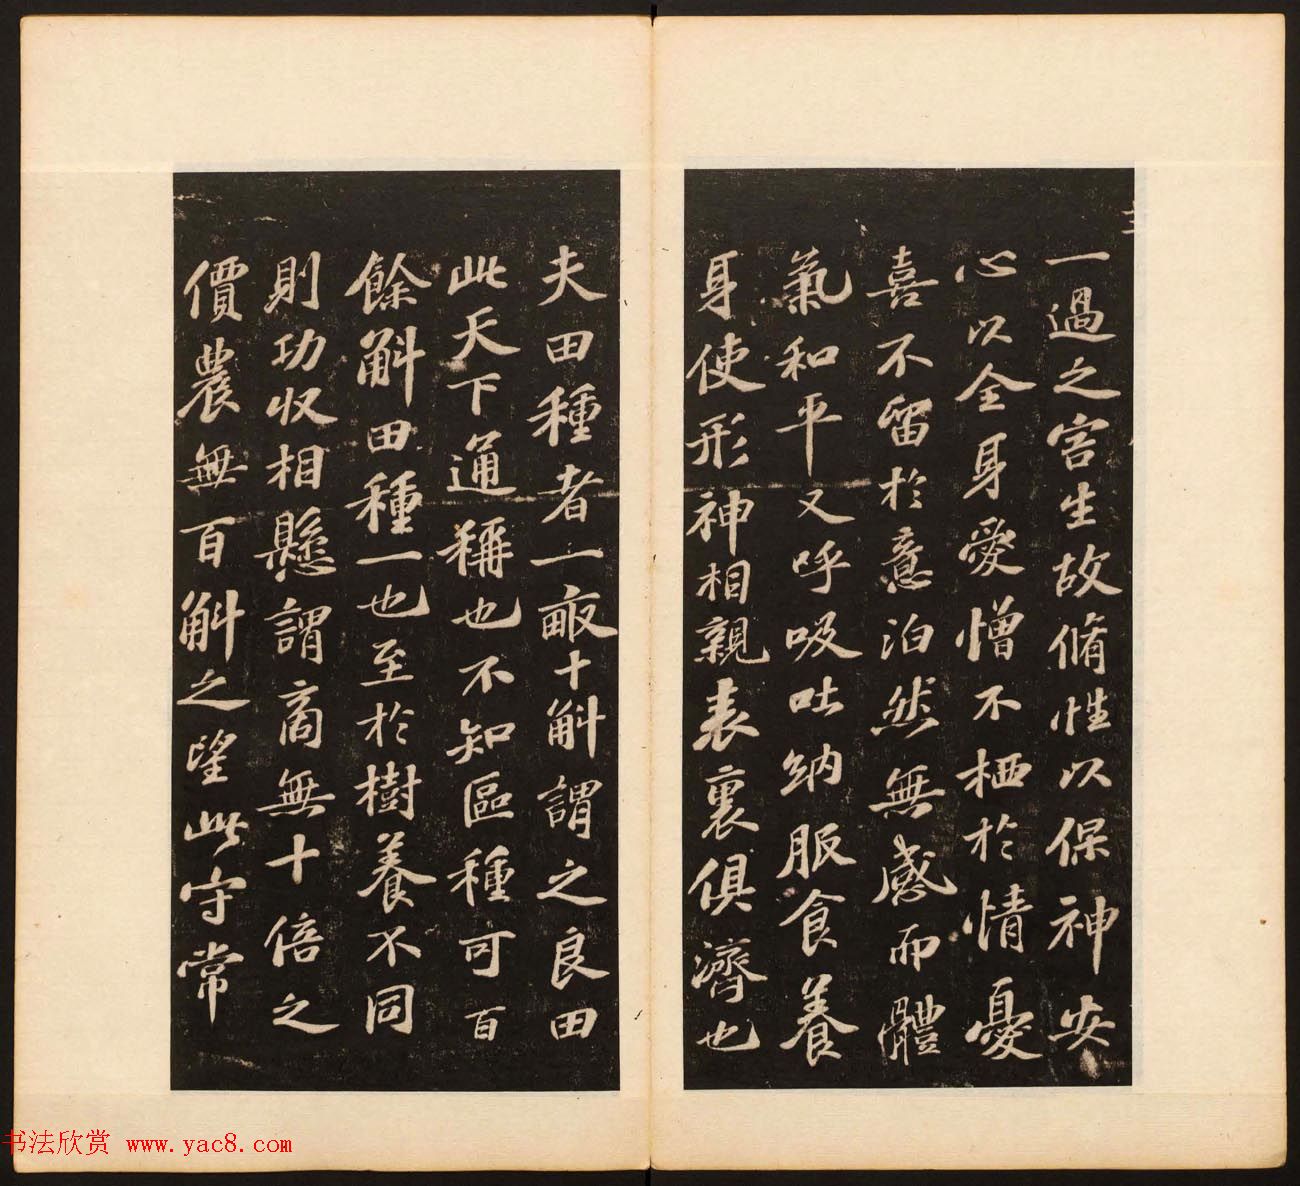 一過之害生故脩性以保神安
心以全身愛憎不栖於情憂
喜不留於意泊然無感而體
氣和平又呼吸吐納服食養
身使形神相親表裏俱濟也
夫田種者一畝十斛謂之良田
此天下通稱也不知區種可百
餘斛田種一也至於樹養不同
則功收相懸謂商無十倍之
價農無百斛之望此守常
书法欣赏 www.yac8.com